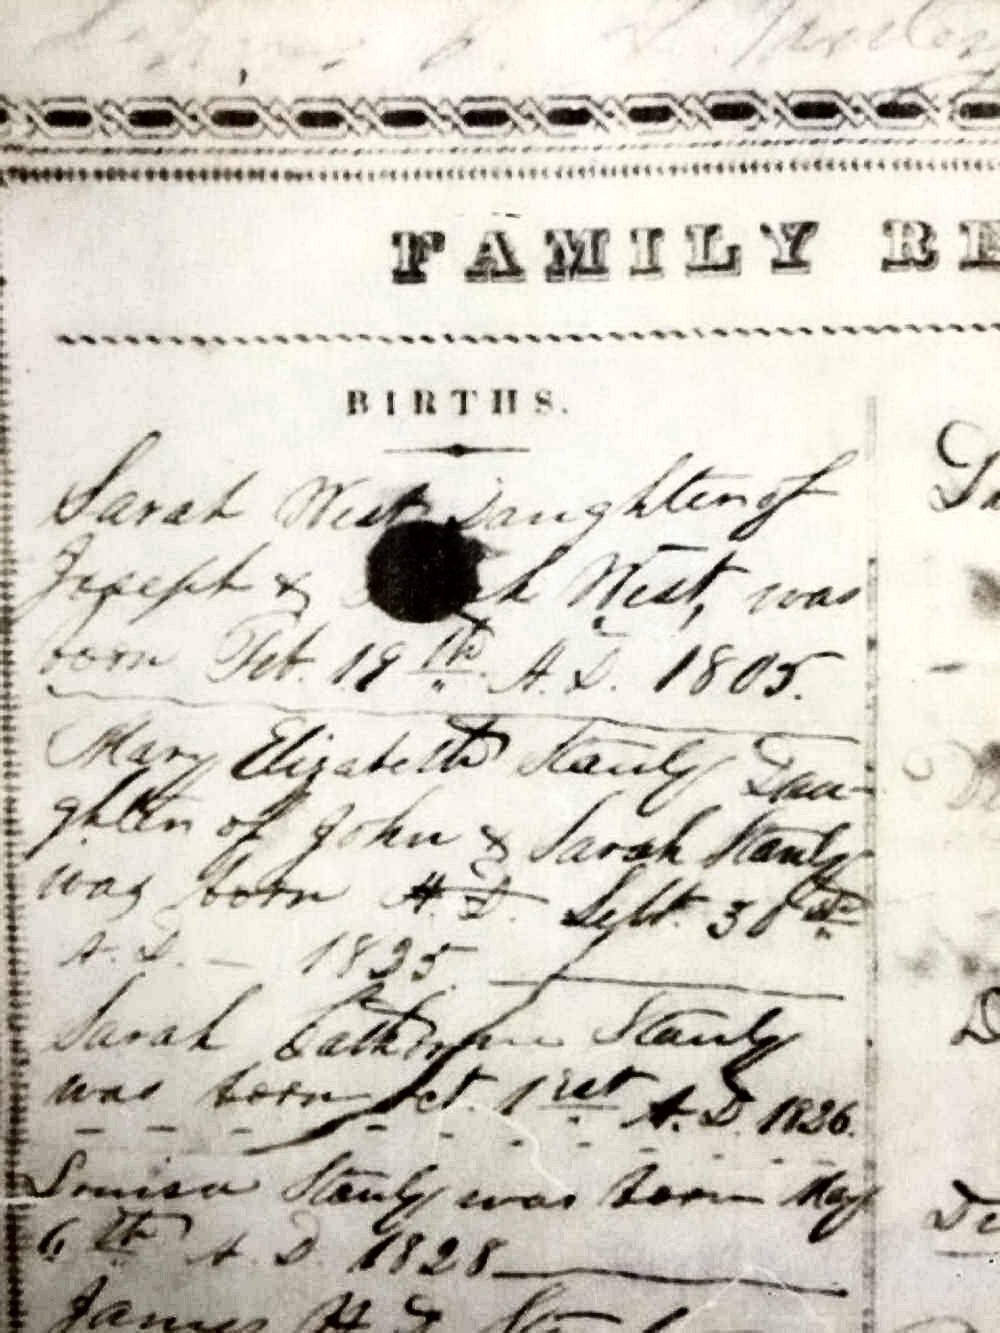 FAMILY RE
BIRTHS.
Sarah West Daughter of
Joseph & West, was
born Feb. 19th A. D. 1805.
Mary Elizabeth Stanly Dau-
ghter of John & Sarah Stanly
was born A. D. Sept. 30th
A. D. — 1825
Sarah Catherine Stanly
was born Oct. 1rst A. D. 1826.
Louisa Stanly was born May
6th A. D. 1828
James H.